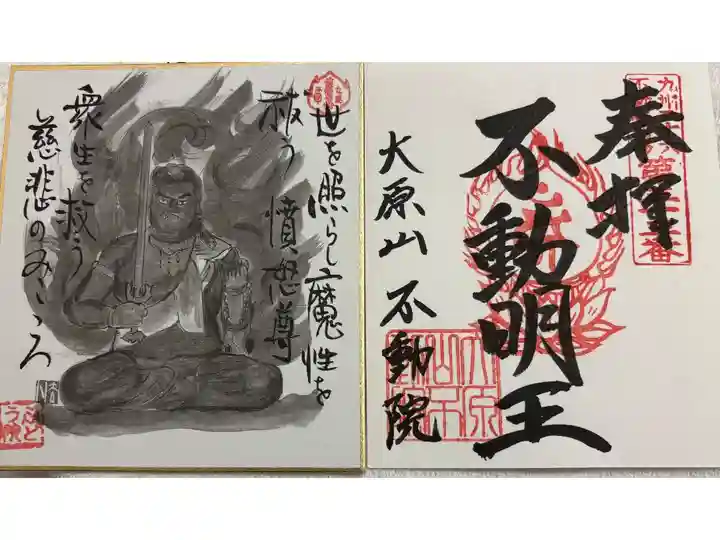 世を照らし魔性を
祓う 憤怒尊
衆生を救う
慈悲のみこころ
奉拝
不動明王
大原山 不動院